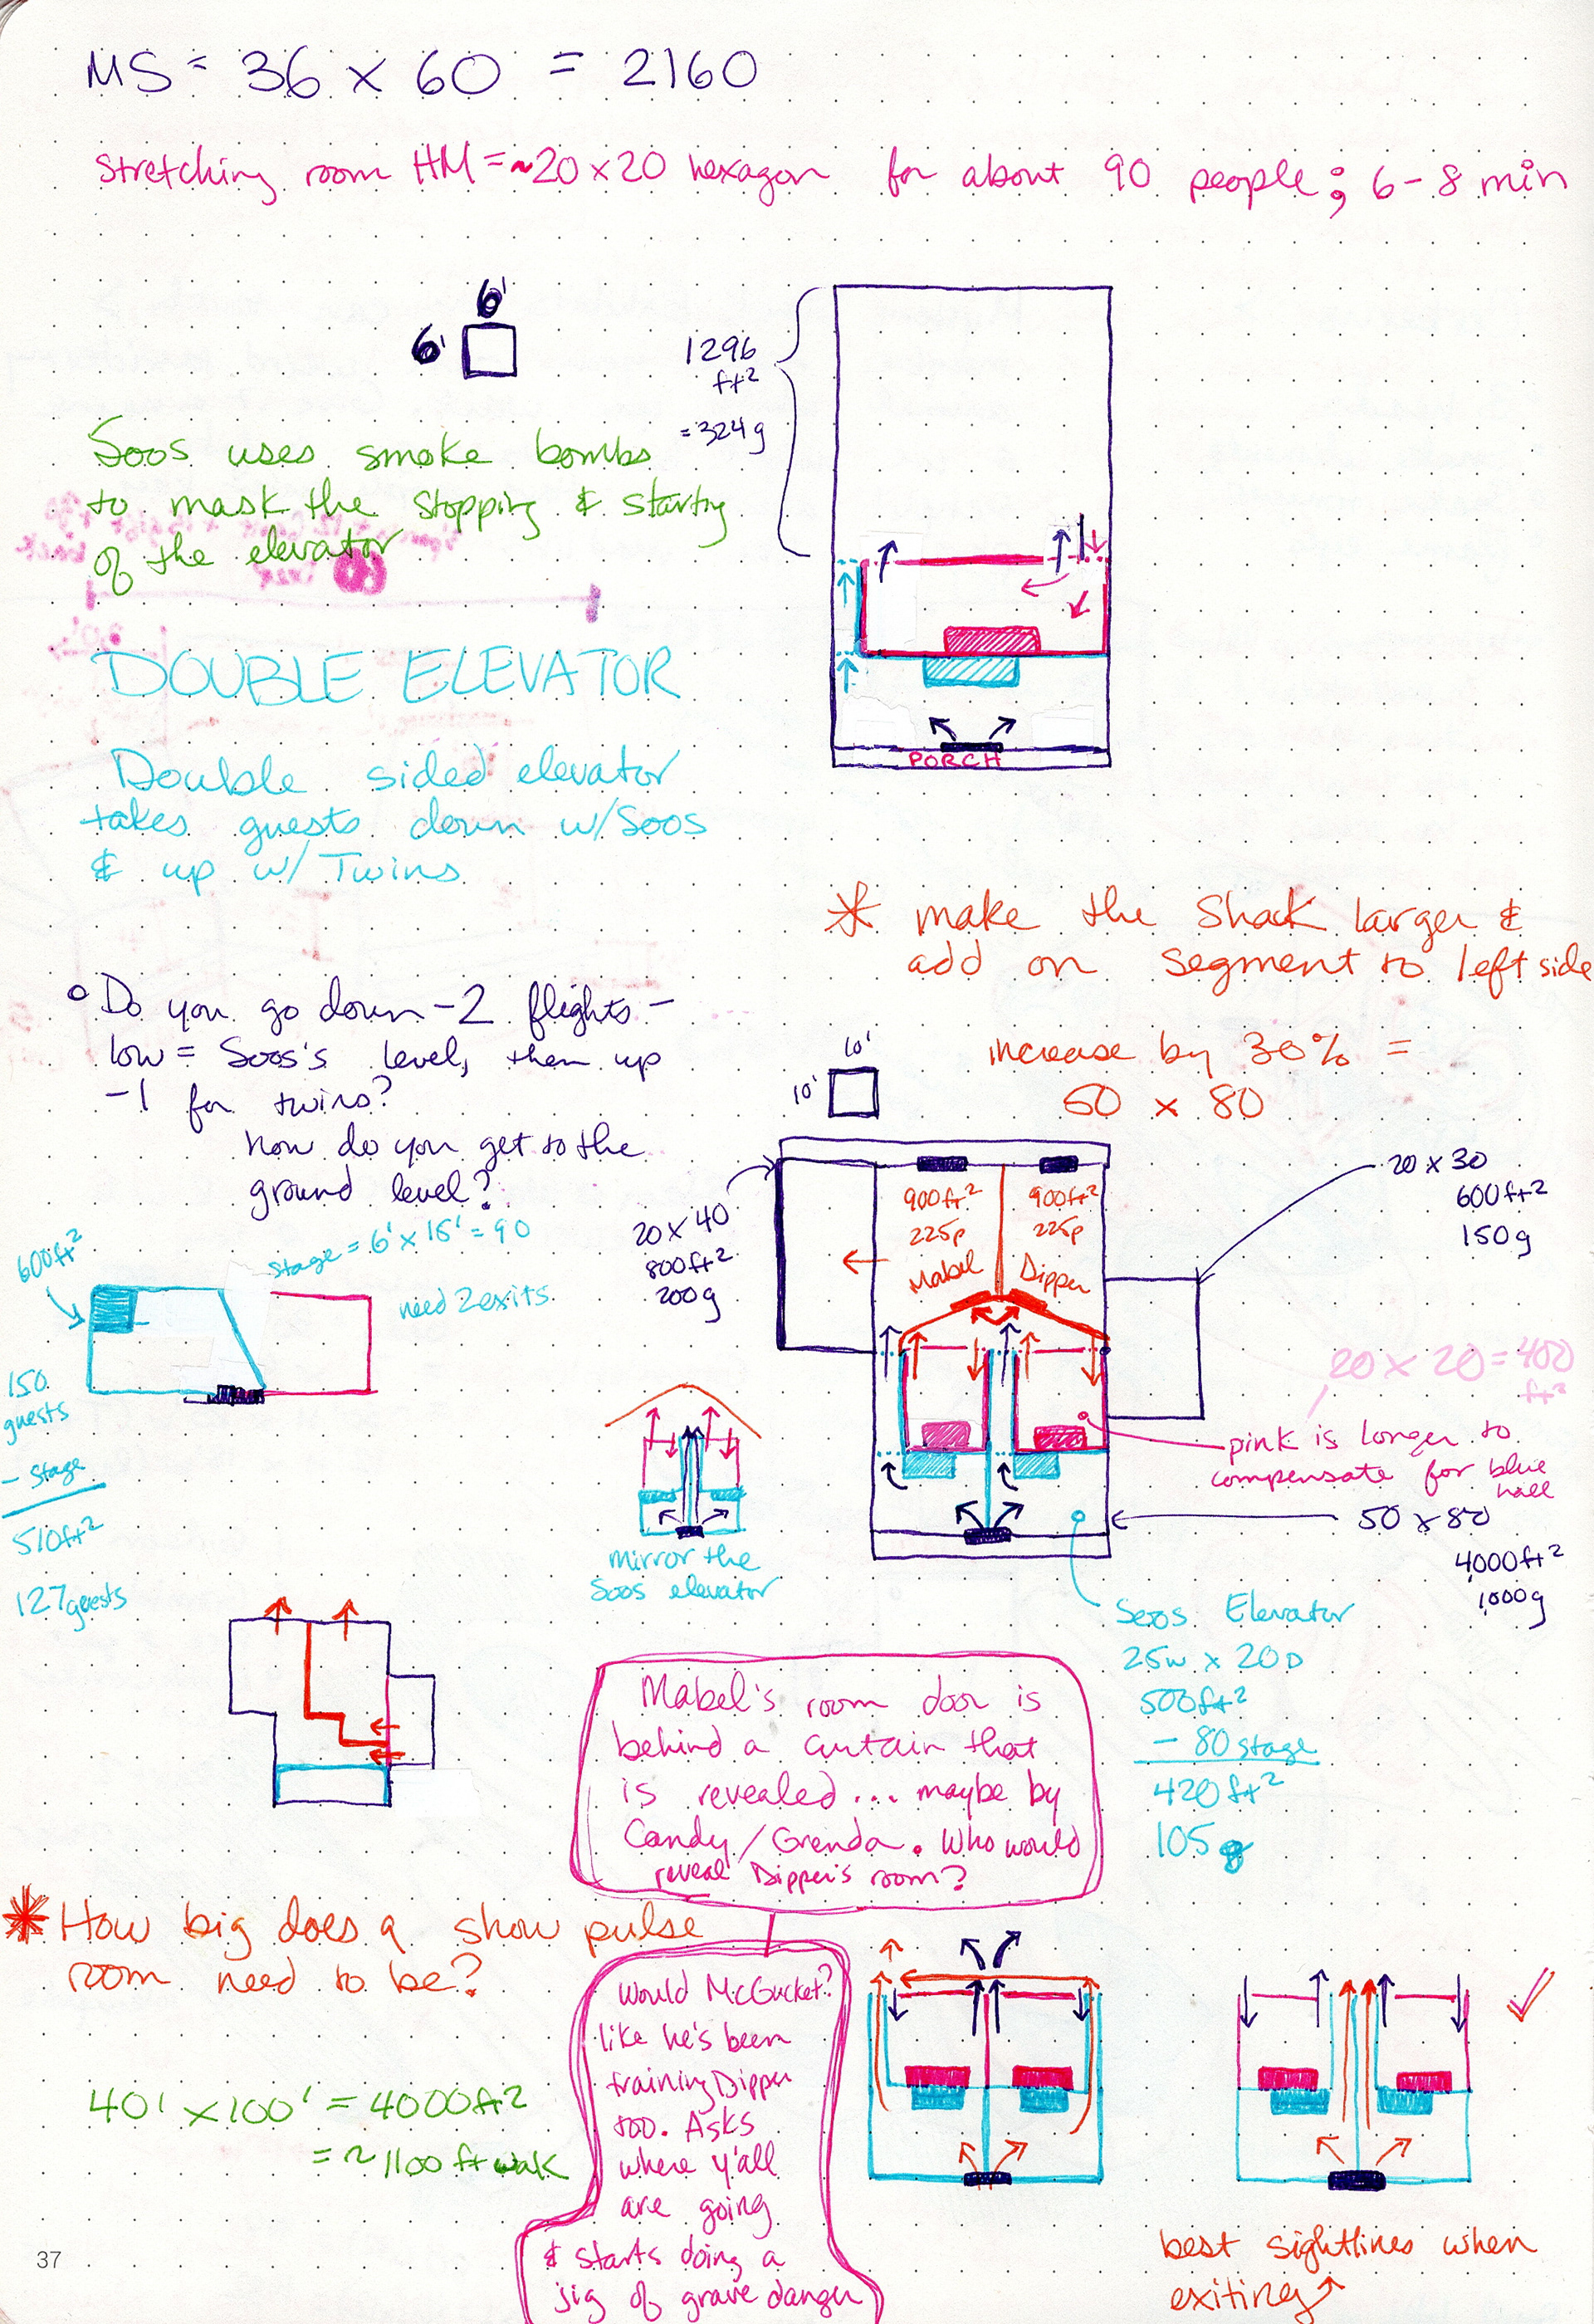 MS = 36 x 60 = 2160
Stretching room HM = ~20 x 20 hexagon for about 90 people; 6-8 min
6'
6'
1296
ft²
=324g
Soos uses smoke bombs
to mask the stopping & starting
of the elevator
PORCH
DOUBLE ELEVATOR
Double sided elevator
takes guests down w/Soos
& up w/ Twins
* make the Shack larger &
add on segment to left side
increase by 30% =
50 x 80
Do you go down -2 flights -
low = Soos's level, then up
-1 for twins?
how do you get to the
ground level?
10'
10'
20 x 30
600ft²
150g
20 x 40
800ft²
200g
900ft²
225p
Mabel
900ft²
225p
Dipper
600ft²
Stage = 6' x 15' = 90
need 2 exits
150
guests
- Stage
510ft²
127guests
20 x 20 = 400
ft²
pink is longer to
compensate for blue
hall
50 x 80
4000ft²
1,000g
mirror the
Soos elevator
Soos Elevator
25w x 20D
500ft²
- 80 stage
420ft²
105g
Mabel's room door is
behind a curtain that
is revealed... maybe by
Candy/Grenda. Who would
reveal Dipper's room?
* How big does a show pulse
room need to be?
Would McGucket?
like he's been
training Dipper
too. Asks
where y'all
are going
& starts doing a
jig of grave danger
40' x 100' = 4000ft²
= ~1100 ft walk
best sightlines when
exiting
37